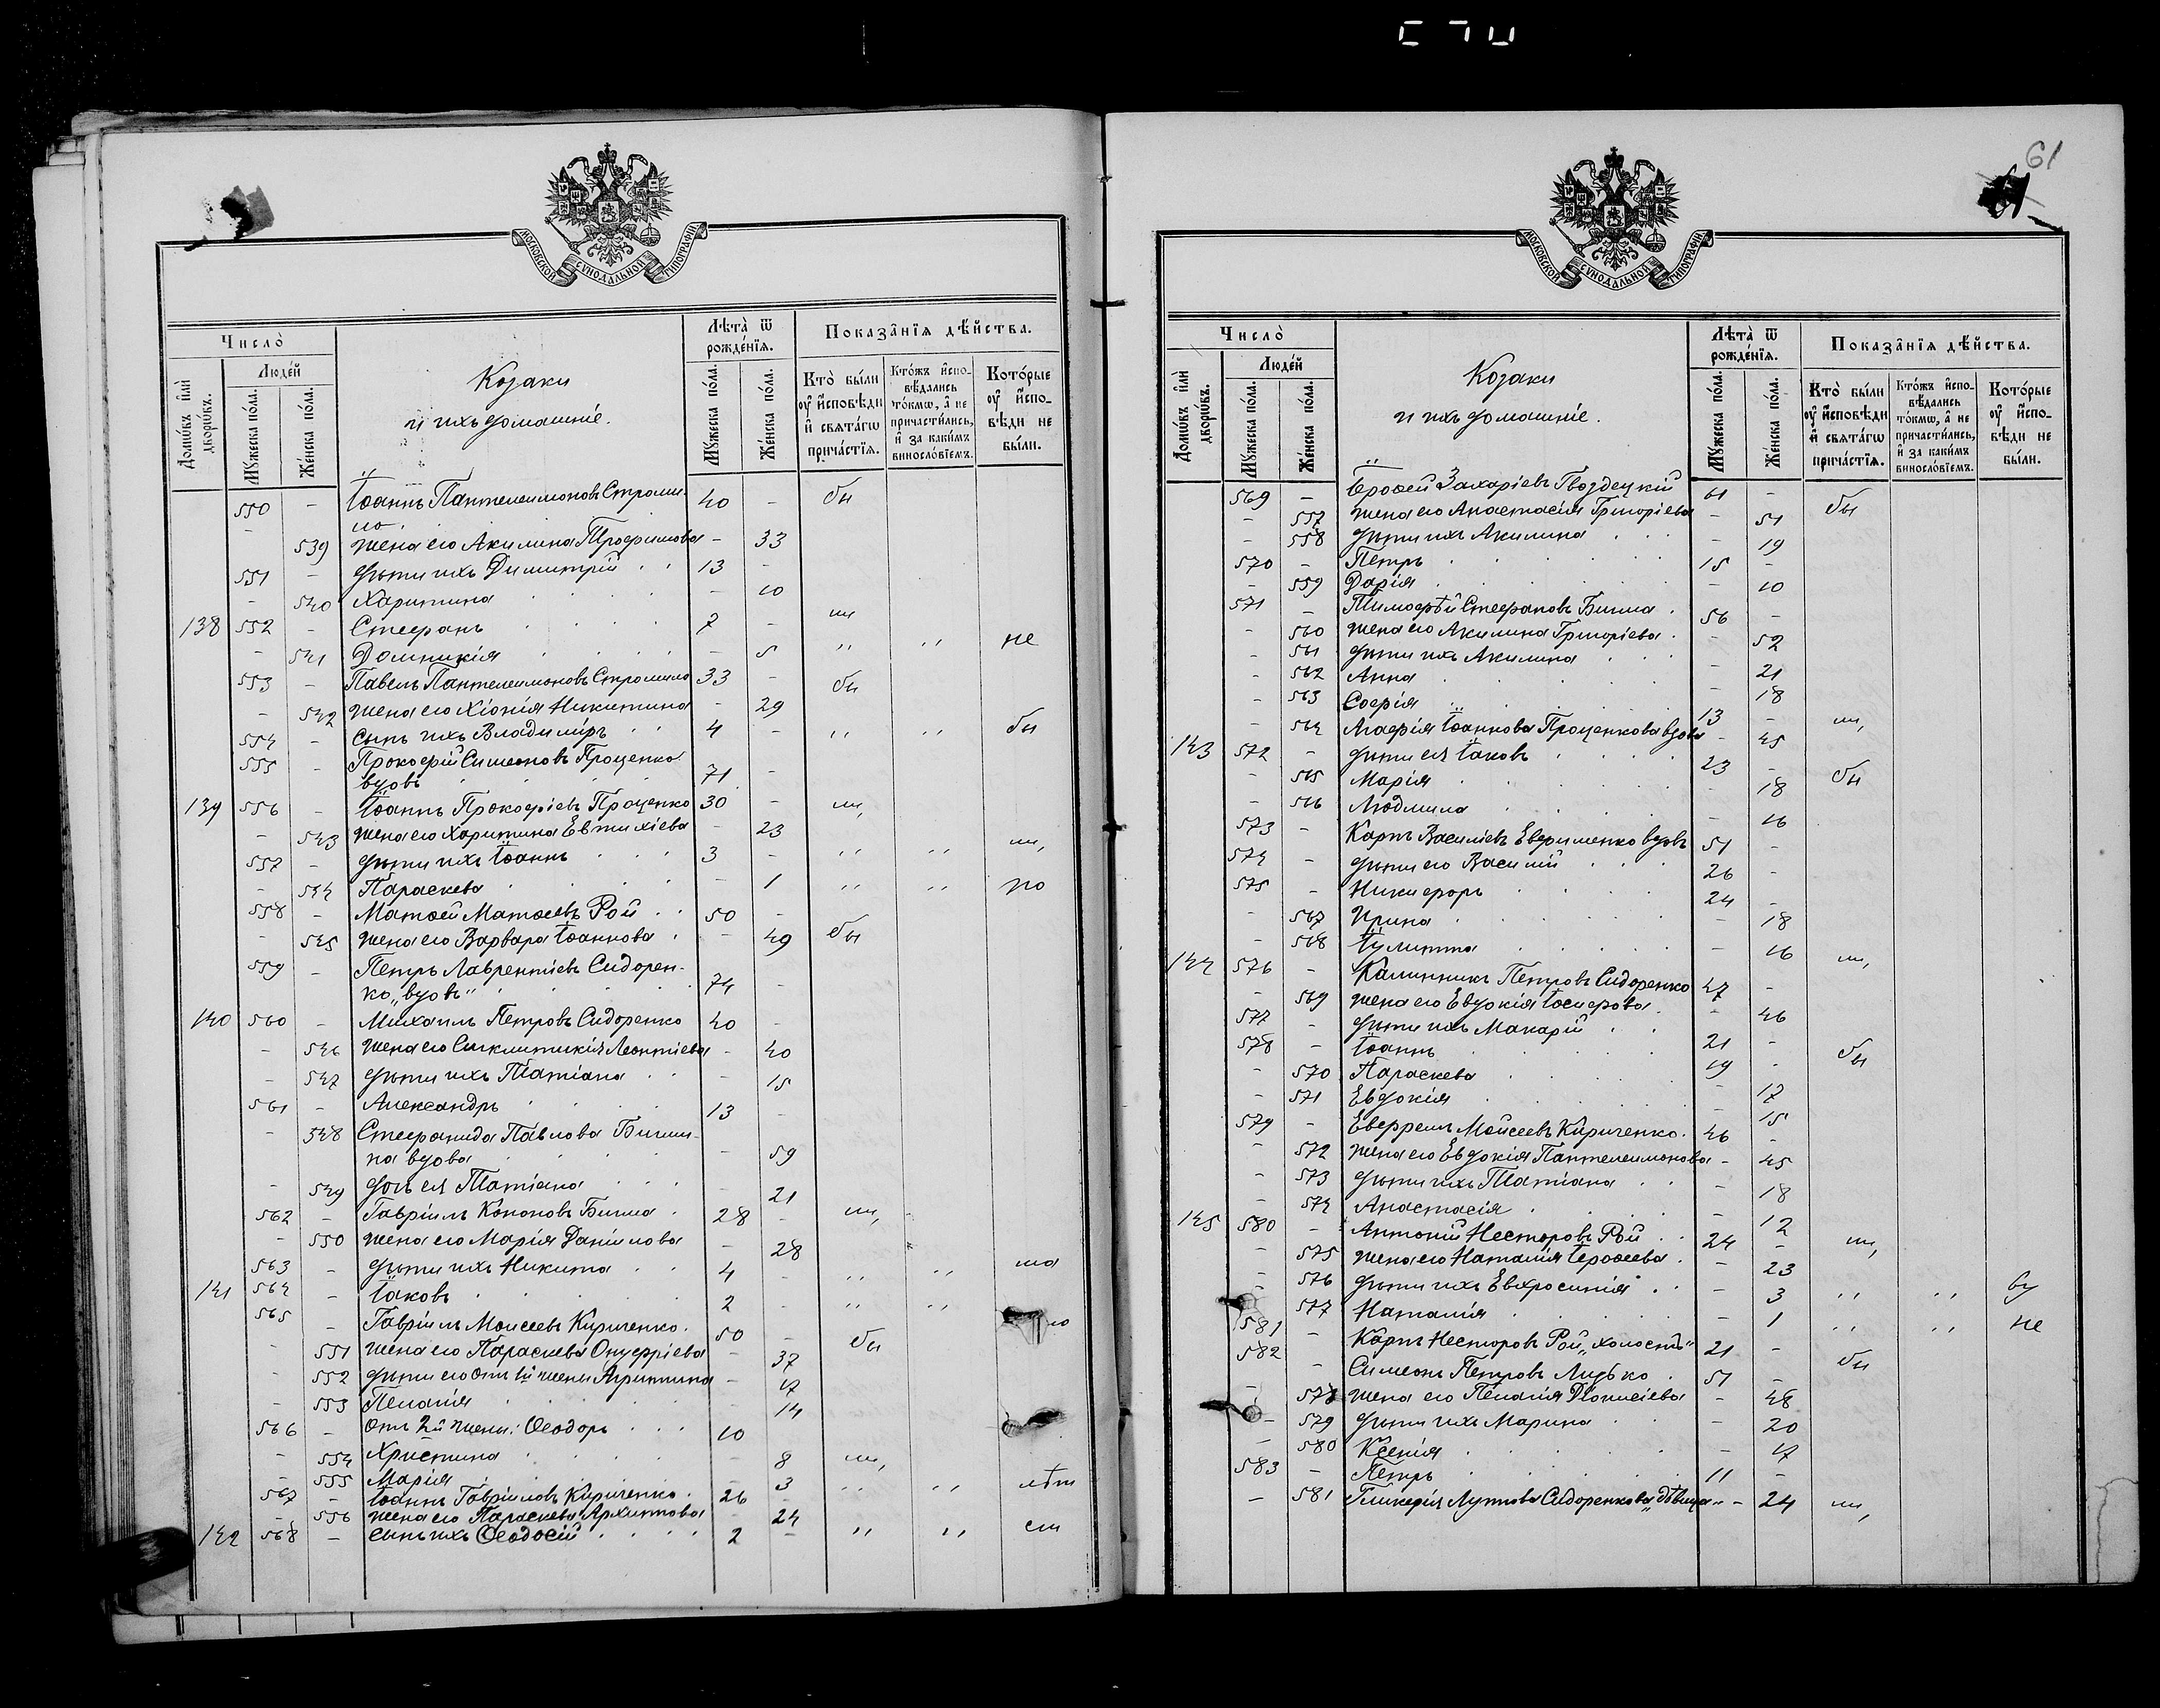 МОСКОВСКОЙ СУНОДАЛЬНОЙ ТИПОГРАФІИ
Число̀
Домѡвъ и҆лѝ дворѡвъ.
Люде́й
Мꙋжеска по́ла.
Же́нска по́ла.
Козаки
и ихъ домашніе.
Лѣта̀ ѿ рожде́нїѧ.
Мꙋжеска по́ла.
Же́нска по́ла.
Показа̑нїѧ дѣ́йства.
Кто̀ бы́ли ᲂу҆ и҆́сповѣди и҆ свѧта́гѡ прича́стїѧ.
Кто́жъ и҆спо-вѣдались то́кмѡ, а҆ не причасти́лись, и҆ за каки́мъ винослові́емъ.
Кото́рые ᲂу҆ и҆́спо-вѣди не бы́ли.
550 - Іоаннъ Пантелеимоновъ Строми- 40 - бы
ло
- 539 жена его Акилина Трофимова - 33
551 - дѣти ихъ Димитрій 13 -
- 540 Харитина - 10
138 552 - Стефанъ 7 - ли
- 541 Домникія - 5 " " не
553 - Павелъ Пантелеимоновъ Стромило 33 - бы
- 542 жена его Хіонія Никитина - 29
554 - сынъ ихъ Владиміръ 4 - " " бы
555 - Прокофій Симеоновъ Проценко
вдовъ 71 -
139 556 - Іоаннъ Прокофіевъ Проценко 30 - ли,
- 543 жена его Харитина Евтихіева - 23
557 - дѣти ихъ Іоаннъ 3 - " " ли,
- 544 Параскева - 1 " " по
558 - Матѳей Матѳеевъ Рой 50 -
- 545 жена его Варвара Іоаннова - 49 бы
559 - Петръ Лаврентіевъ Сидорен-
ко „вдовъ" 74 -
140 560 - Михаилъ Петровъ Сидоренко 40 -
- 546 жена его Сигклитикія Леонтіева - 40
- 547 дѣти ихъ Татіана - 15
561 - Александръ 13 -
- 548 Стефанида Павлова Бигми-
на вдова - 59
- 549 дочь ея Татіана - 21
562 - Гавріилъ Кононовъ Бигма 28 - ли,
- 550 жена его Марія Даніилова - 28
563 - дѣти ихъ Никита 4 - " " ма
141 564 - Іаковъ 2 - " " ло
565 - Гавріилъ Моисеевъ Кириченко 50 - бы
- 551 жена его Параскева Онуфріева - 37
- 552 дѣти его отъ 1й жены Агрипина - 17
- 553 Пелагія - 14
566 - отъ 2й жены: Ѳеодоръ 10
- 554 Христина - 8 ли,
- 555 Марія - 3 " " лѣт
567 - Іоаннъ Гавріиловъ Кириченко 26 -
- 556 жена его Параскева Архипова - 24
142 568 - сынъ ихъ Ѳеодосій 2 - " " ст
61
МОСКОВСКОЙ СУНОДАЛЬНОЙ ТИПОГРАФІИ
Число̀
Домѡвъ и҆лѝ дворѡвъ.
Люде́й
Мꙋжеска по́ла.
Же́нска по́ла.
Козаки
и ихъ домашніе.
Лѣта̀ ѿ рожде́нїѧ.
Мꙋжеска по́ла.
Же́нска по́ла.
Показа̑нїѧ дѣ́йства.
Кто̀ бы́ли ᲂу҆ и҆́сповѣди и҆ свѧта́гѡ прича́стїѧ.
Кто́жъ и҆спо-вѣдались то́кмѡ, а҆ не причасти́лись, и҆ за каки́мъ винослові́емъ.
Кото́рые ᲂу҆ и҆́спо-вѣди не бы́ли.
569 - Іероѳей Захаріевъ Гвоздецкій 61 - бы
- 557 жена его Анастасія Григоріева - 51
- 558 дѣти ихъ Акилина - 19
570 - Петръ 15 -
- 559 Дарія - 10
571 - Тимофѣй Стефановъ Бигма 56 -
- 560 жена его Акилина Григоріева - 52
- 561 дѣти ихъ Акилина - 21
- 562 Анна - 18
- 563 Софія 13 - ли,
- 564 Агафія Іоаннова Проценкова вдова - 45
143 572 - дѣти ея Іаковъ 23 -
- 565 Марія - 18 бы
- 566 Людмила - 16
573 - Карпъ Василіевъ Евфименко вдовъ 51 -
574 - дѣти его Василій 26 -
575 - Никифоръ 24 -
- 567 Ирина - 18
- 568 Іулитта - 16 ли,
144 576 - Каллиникъ Петровъ Сидоренко 47 -
- 569 жена его Евдокія Іосифова - 46
577 - дѣти ихъ Макарій 21 -
578 - Іоаннъ 19 - бы
- 570 Параскева - 17
- 571 Евдокія - 15
579 - Евфремъ Моѵсеевъ Кириченко 46 -
- 572 жена его Евдокія Пантелеимонова - 45
- 573 дѣти ихъ Татіана - 18
- 574 Анастасія - 12
145 580 - Антоній Несторовъ Рой 24 - ли,
- 575 жена его Наталія Іероѳеева - 23
- 576 дѣти ихъ Евфросинія - 3 " " бу
- 577 Наталія - 1 " " не
581 - Карпъ Несторовъ Рой „холостъ" 21 -
582 - Симеонъ Петровъ Лидко 51 - бы
- 578 жена его Пелагія Діонисіева - 48
- 579 дѣти ихъ Марина - 20
- 580 Ксенія - 17
583 - Петръ 11 -
- 581 Гликерія Луппова Сидоренкова „дѣвица" - 24 ли,